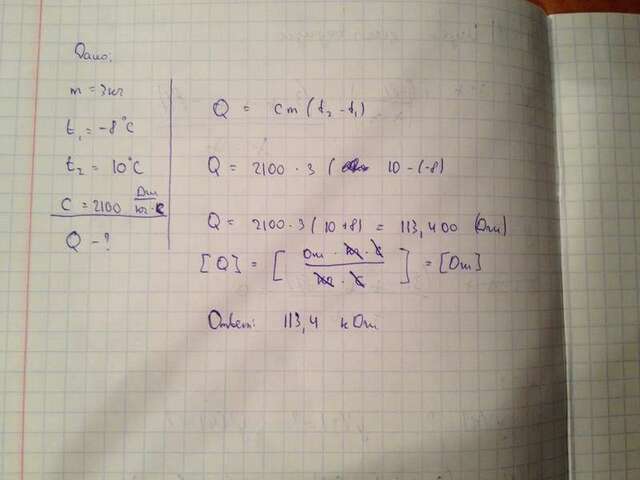 Дано:
m = 3кг
t₁ = -8°C
t₂ = 10°C
C = 2100 Дж/кг·C
Q - ?
Q = cm(t₂ - t₁)
Q = 2100 · 3 ( 10 - (-8)
Q = 2100 · 3 (10 + 8) = 113,400 (Дж)
[Q] = [Дж · кг · C / кг · C] = [Дж]
Ответ: 113,4 кДж